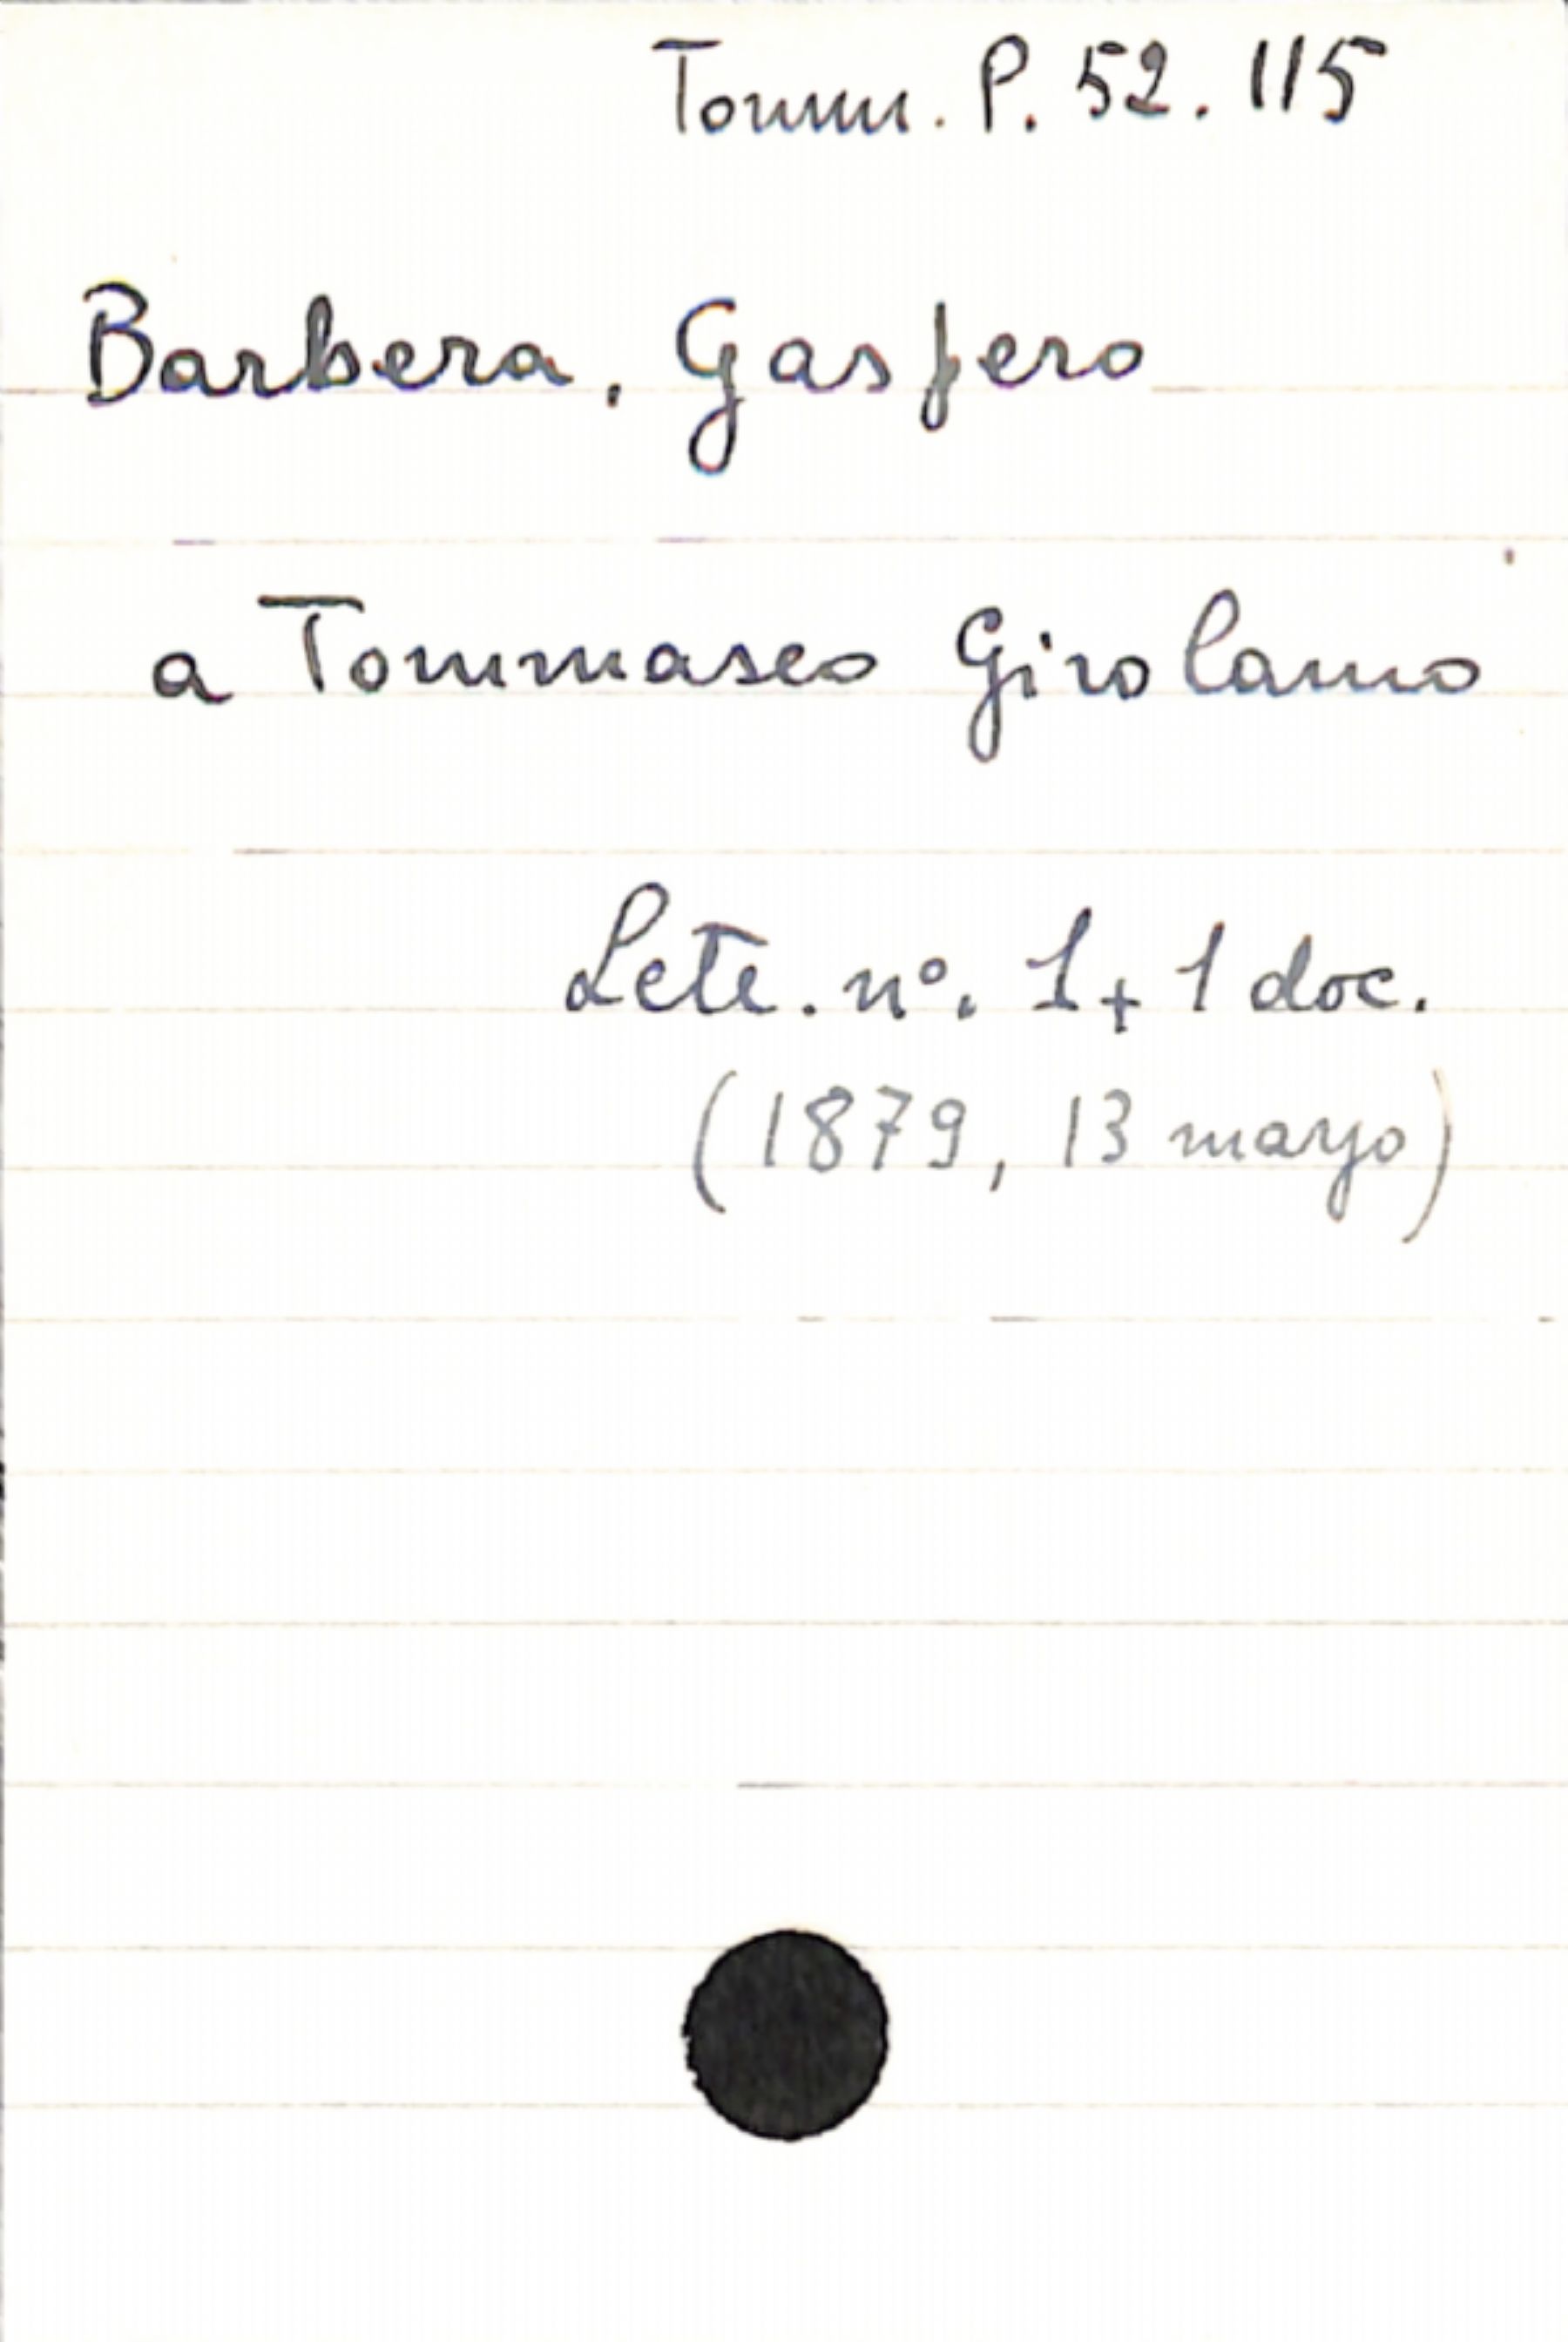 Tomm. P. 52. 115
Barbera, Gaspero
a Tommaseo Girolamo
Lett. n°. 1 + 1 doc.
(1879, 13 marzo)